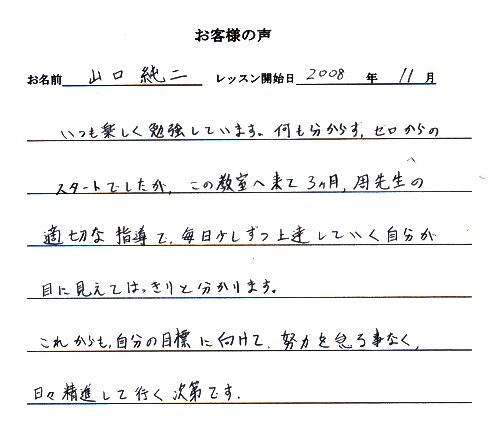 お客様の声
お名前 山口 純二 レッスン開始日 2008 年 11 月
いつも楽しく勉強しています。何も分からず、ゼロからの
スタートでしたが、この教室へ来て3ヶ月、周先生の
適切な指導で、毎日少しずつ上達していく自分が
目に見えてはっきりと分かります。
これからも、自分の目標に向けて、努力を怠る事なく、
日々精進して行く次第です。